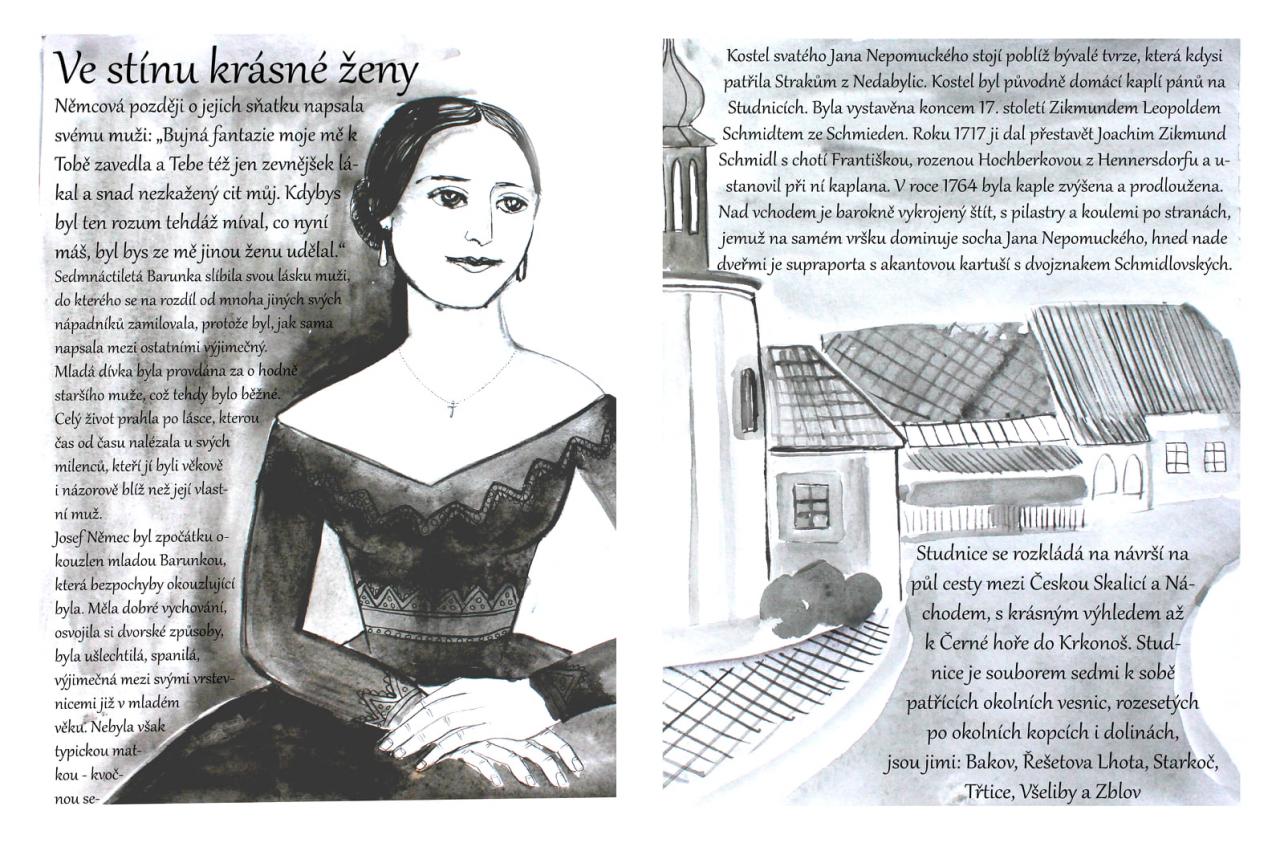 Ve stínu krásné ženy
Němcová později o jejich sňatku napsala
svému muži: „Bujná fantazie moje mě k
Tobě zavedla a Tebe též jen zevnějšek lá-
kal a snad nezkažený cit můj. Kdybys
byl ten rozum tehdáž míval, co nyní
máš, byl bys ze mě jinou ženu udělal.“
Sedmnáctiletá Barunka slíbila svou lásku muži,
do kterého se na rozdíl od mnoha jiných svých
nápadníků zamilovala, protože byl, jak sama
napsala mezi ostatními výjimečný.
Mladá dívka byla provdána za o hodně
staršího muže, což tehdy bylo běžné.
Celý život prahla po lásce, kterou
čas od času nalézala u svých
milenců, kteří jí byli věkově
i názorově blíž než její vlast-
ní muž.
Josef Němec byl zpočátku o-
kouzlen mladou Barunkou,
která bezpochyby okouzlující
byla. Měla dobré vychování,
osvojila si dvorské způsoby,
byla ušlechtilá, spanilá,
výjimečná mezi svými vrstev-
nicemi již v mladém
věku. Nebyla však
typickou mat-
kou - kvoč-
nou se-
Kostel svatého Jana Nepomuckého stojí poblíž bývalé tvrze, která kdysi
patřila Strakům z Nedabylic. Kostel byl původně domácí kaplí pánů na
Studnicích. Byla vystavěna koncem 17. století Zikmundem Leopoldem
Schmidtem ze Schmieden. Roku 1717 ji dal přestavět Joachim Zikmund
Schmidl s chotí Františkou, rozenou Hochberkovou z Hennersdorfu a u-
stanovil při ní kaplana. V roce 1764 byla kaple zvýšena a prodloužena.
Nad vchodem je barokně vykrojený štít, s pilastry a koulemi po stranách,
jemuž na samém vršku dominuje socha Jana Nepomuckého, hned nade
dveřmi je supraporta s akantovou kartuší s dvojznakem Schmidlovských.
Studnice se rozkládá na návrší na
půl cesty mezi Českou Skalicí a Ná-
chodem, s krásným výhledem až
k Černé hoře do Krkonoš. Stud-
nice je souborem sedmi k sobě
patřících okolních vesnic, rozesetých
po okolních kopcích i dolinách,
jsou jimi: Bakov, Řešetova Lhota, Starkoč,
Třtice, Všeliby a Zblov